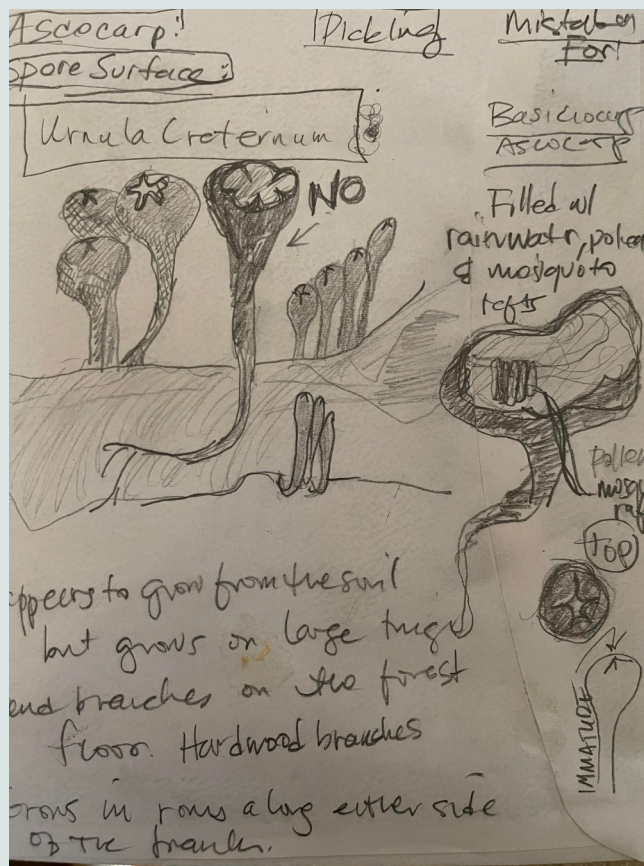 Ascocarp:
Spore Surface:
Urnula Craternum
Pickling
Mistaken
For
Basidiocarp
Ascocarp
NO
Filled w/
rainwater, pollen
& mosquito
rafts
pollen
mosqu
raf
top
IMMATURE
ppears to grow from the soil
but grows on large twigs
and branches on the forest
floor. Hardwood branches
Grows in rows along either side
of the branch.